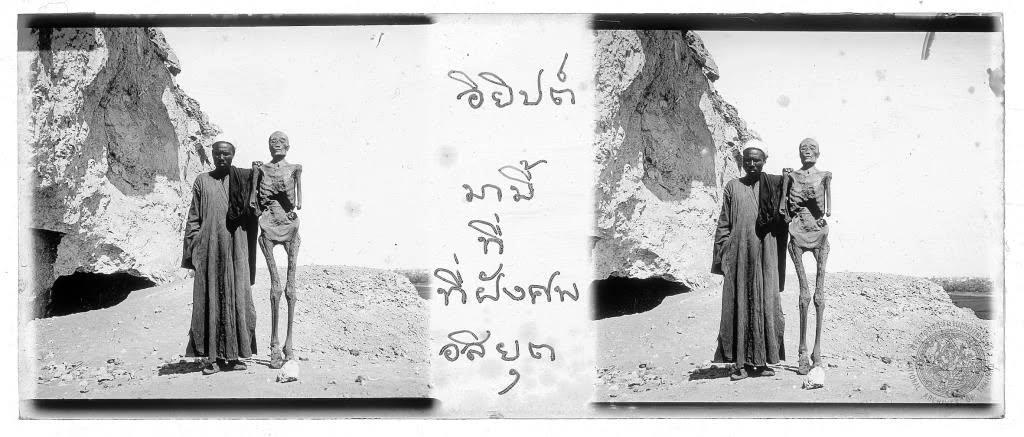 อิยิปต์
มามี้
ที่
ที่ฝังศพ
อสียุต